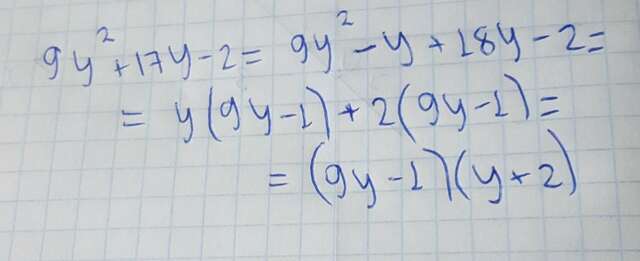 9y² + 17y - 2 = 9y² - y + 18y - 2 =
= y(9y - 1) + 2(9y - 1) =
= (9y - 1)(y + 2)